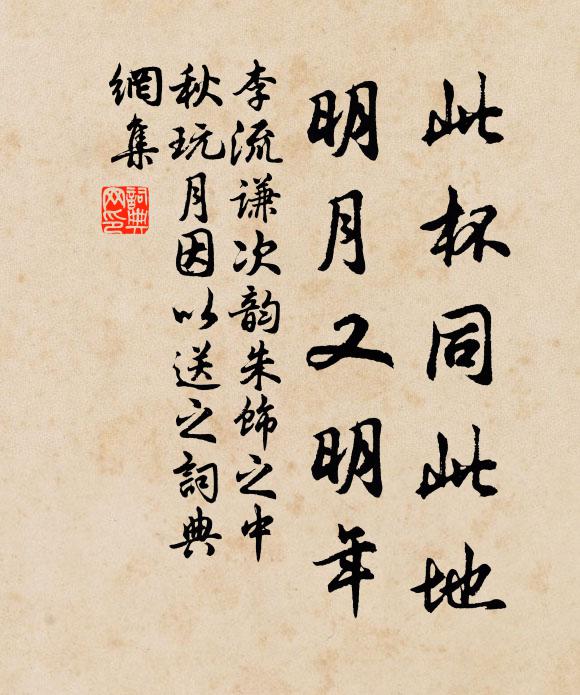 此杯同此地
明月又明年
李流谦次韵朱饰之中
秋玩月因以送之詞典
網集
詞典
网印